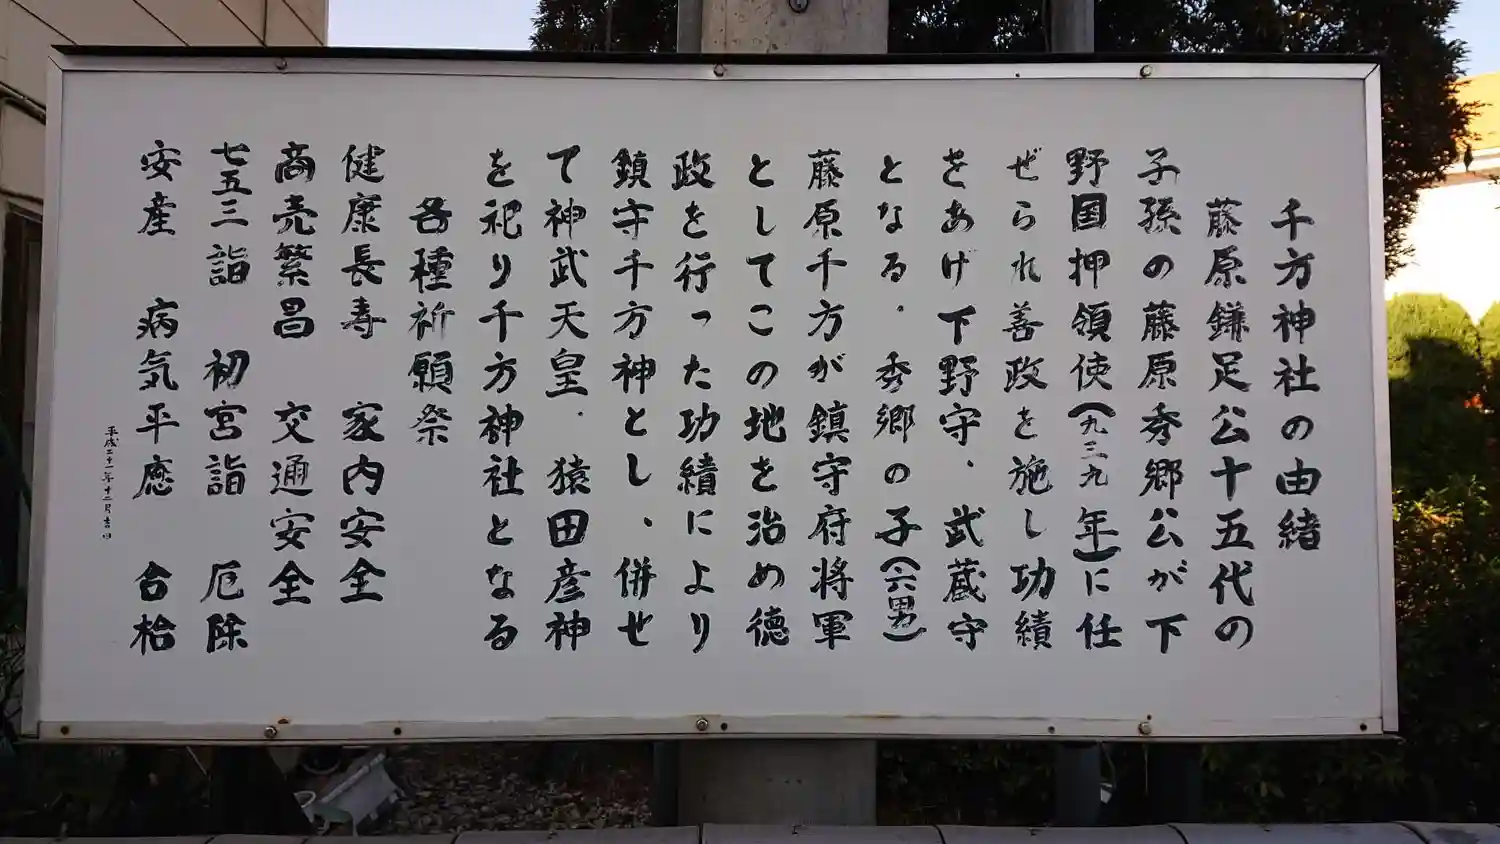 千方神社の由緒
藤原鎌足公十五代の
子孫の藤原秀郷公が下
野国押領使(九三九年)に任
ぜられ善政を施し功績
をあげ下野守、武蔵守
となる.秀郷の子(六男)
藤原千方が鎮守府将軍
としてこの地を治め徳
政を行った功績により
鎮守千方神とし、併せ
て神武天皇.猿田彦神
を祀り千方神社となる
各種祈願祭
健康長寿 家内安全
商売繁昌 交通安全
七五三詣 初宮詣 厄除
安産 病気平癒 合格
平成二十一年十二月吉日